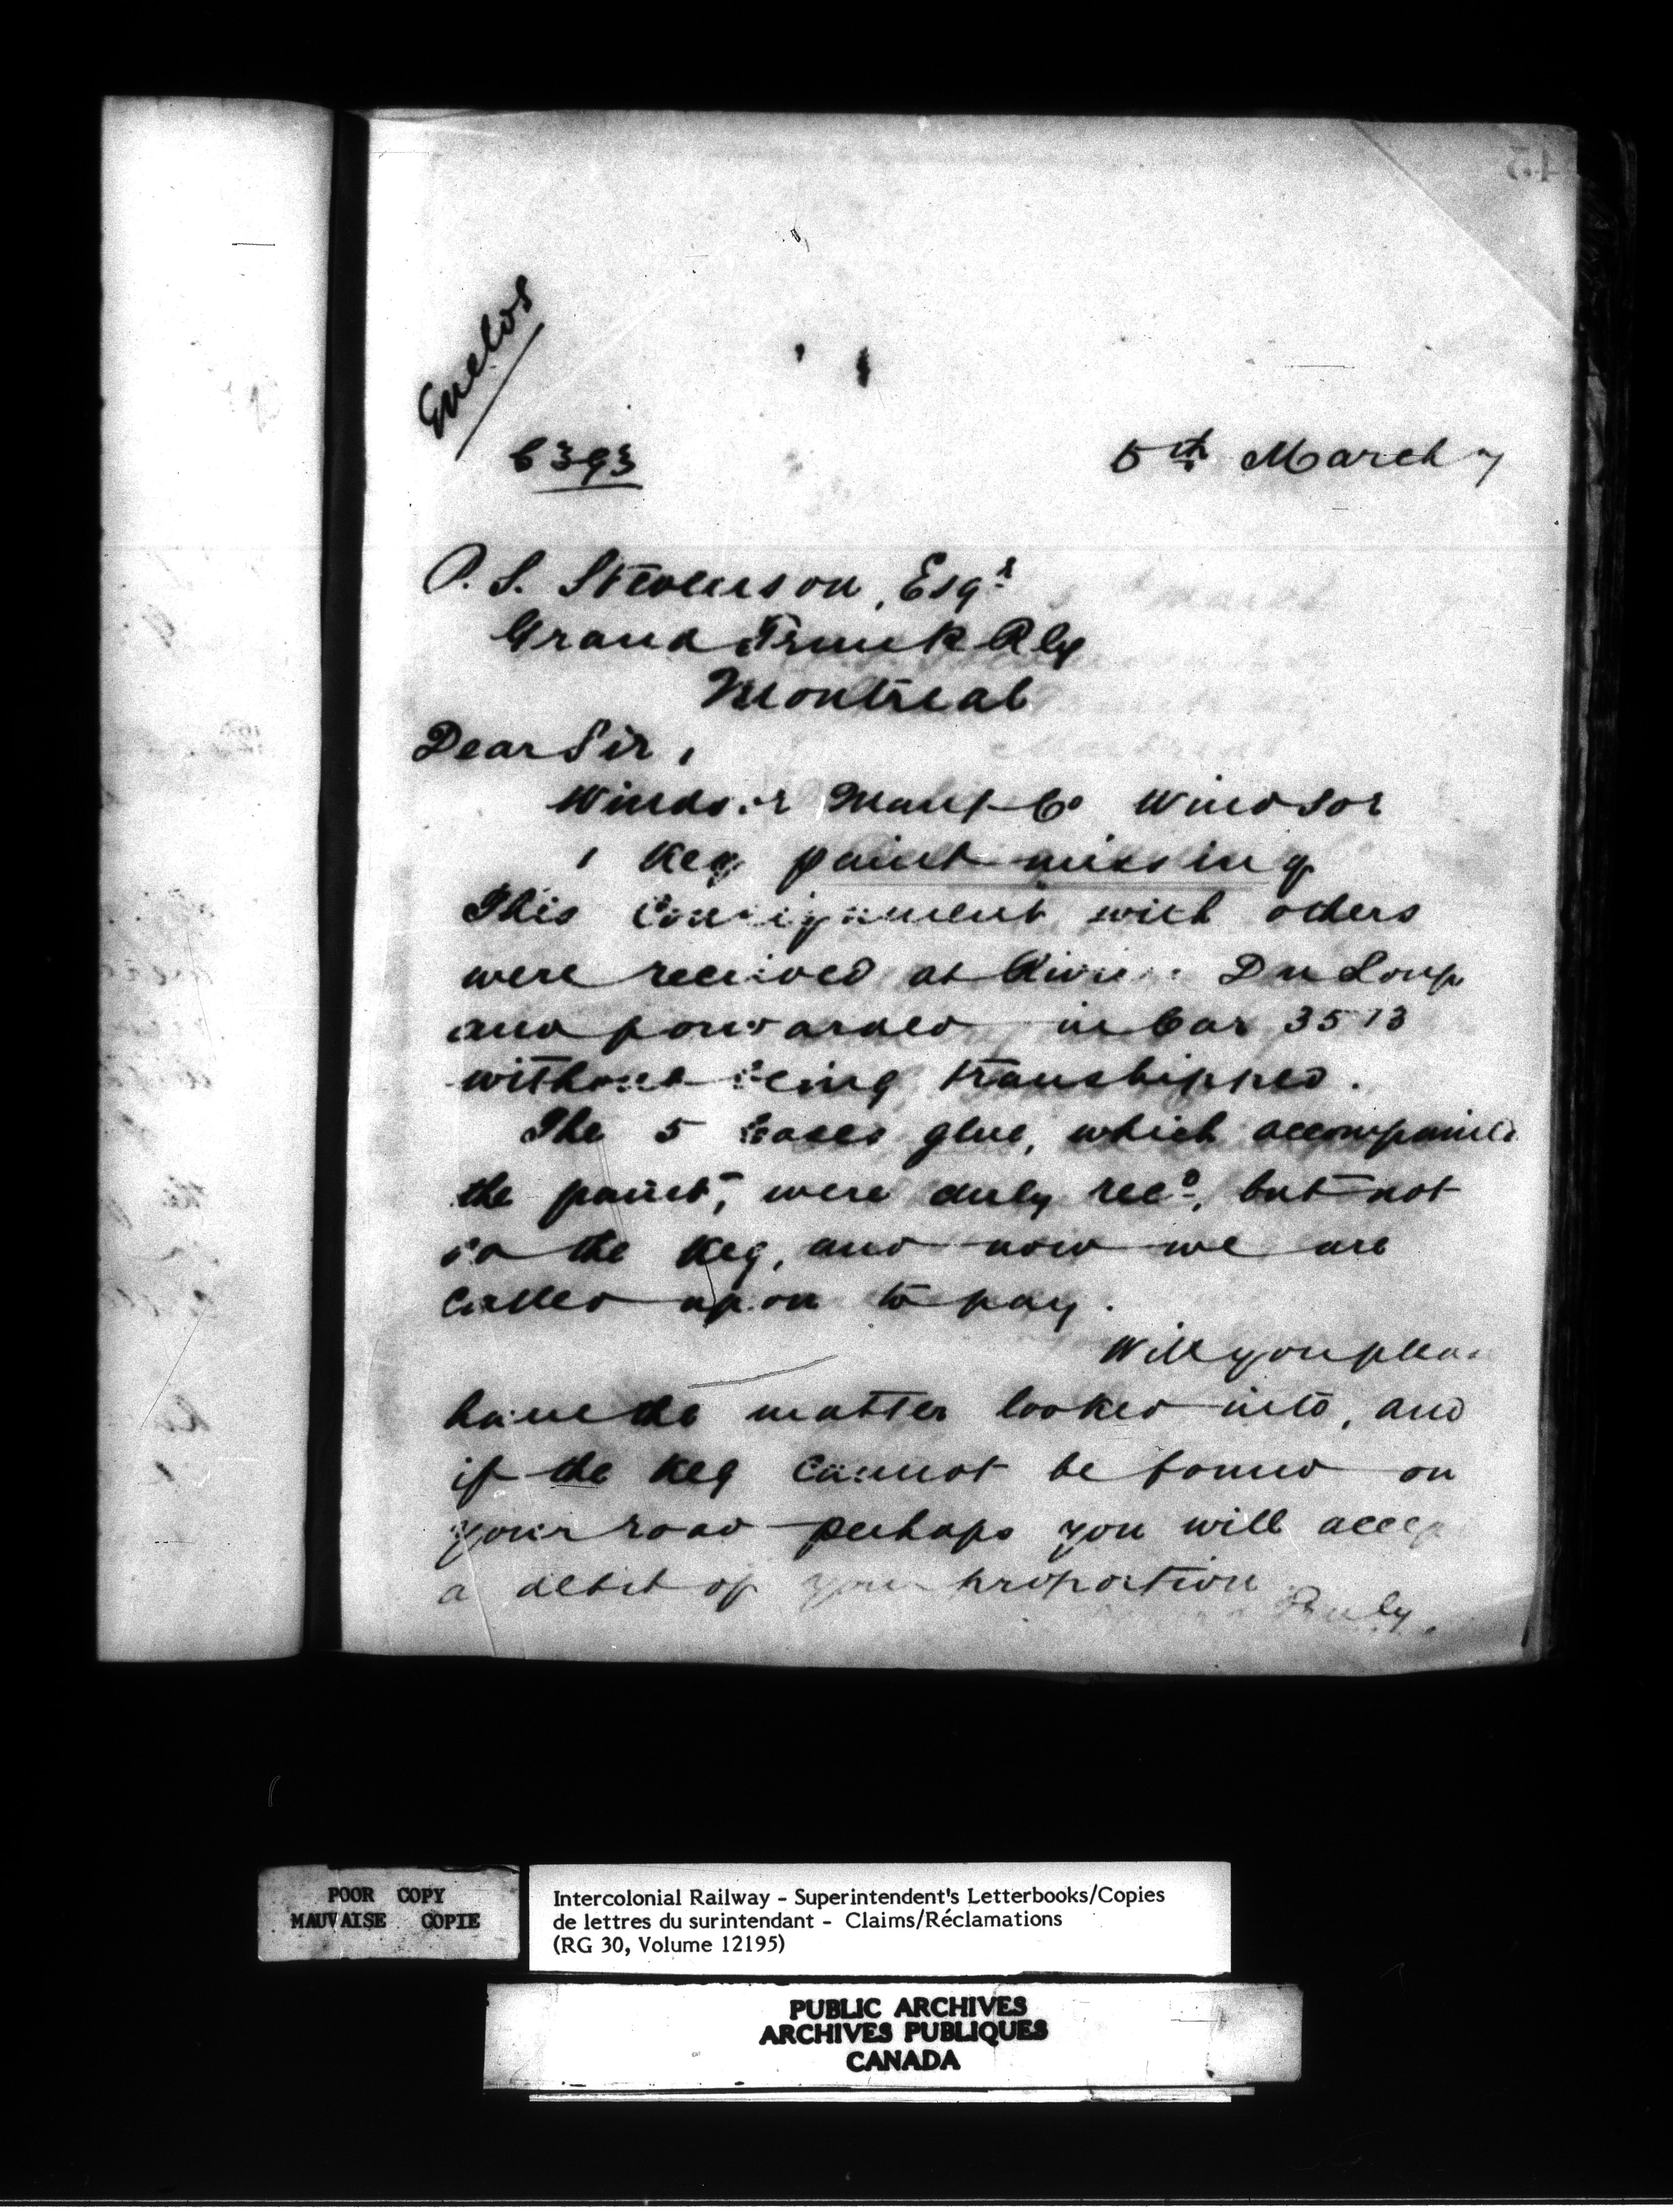 Enclos
6393
5th March 7
P. S. Stevenson, Esqr
Grand Trunk Rly
Montreal
Dear Sir,
Windsor Manf Co Windsor
1 Keg paint missing
This Consignment with others
were received at Riviere Du Loup
and forwarded in Car 3513
without being transhipped.
The 5 Cases glue, which accompanied
the paint, were duly recd, but not
so the Keg, and now we are
Called upon to pay.
Will you please
have the matter looked into, and
if the Keg Cannot be found on
your road perhaps you will accep
a debit of your proportion
Truly,
POOR COPY
MAUVAISE COPIE
Intercolonial Railway - Superintendent's Letterbooks/Copies
de lettres du surintendant - Claims/Réclamations
(RG 30, Volume 12195)
PUBLIC ARCHIVES
ARCHIVES PUBLIQUES
CANADA